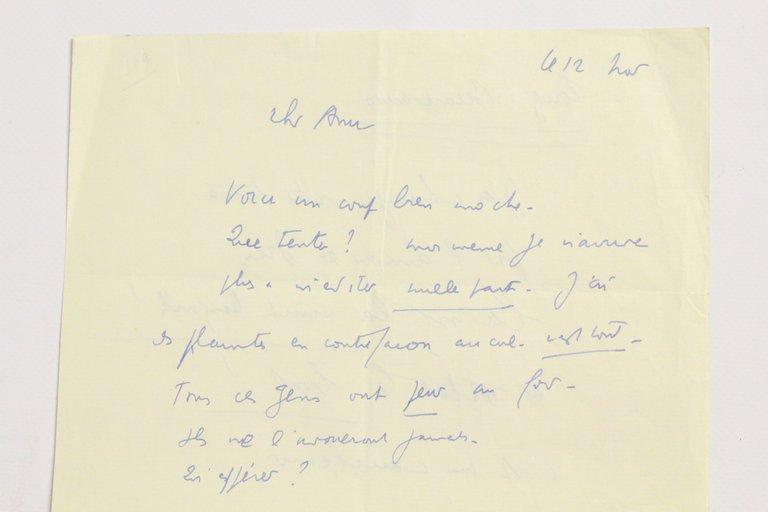 le 12 Nov
Cher Ami
Voici un coup bien moche.
Que tenter ? moi même je n'arrive
plus a m'éditer nulle part. J'ai
des plaintes en contrefaçon au cul. c'est tout.
Tous ces gens ont peur au fond.
Ils ne l'avoueront jamais.
Qui espérer ?